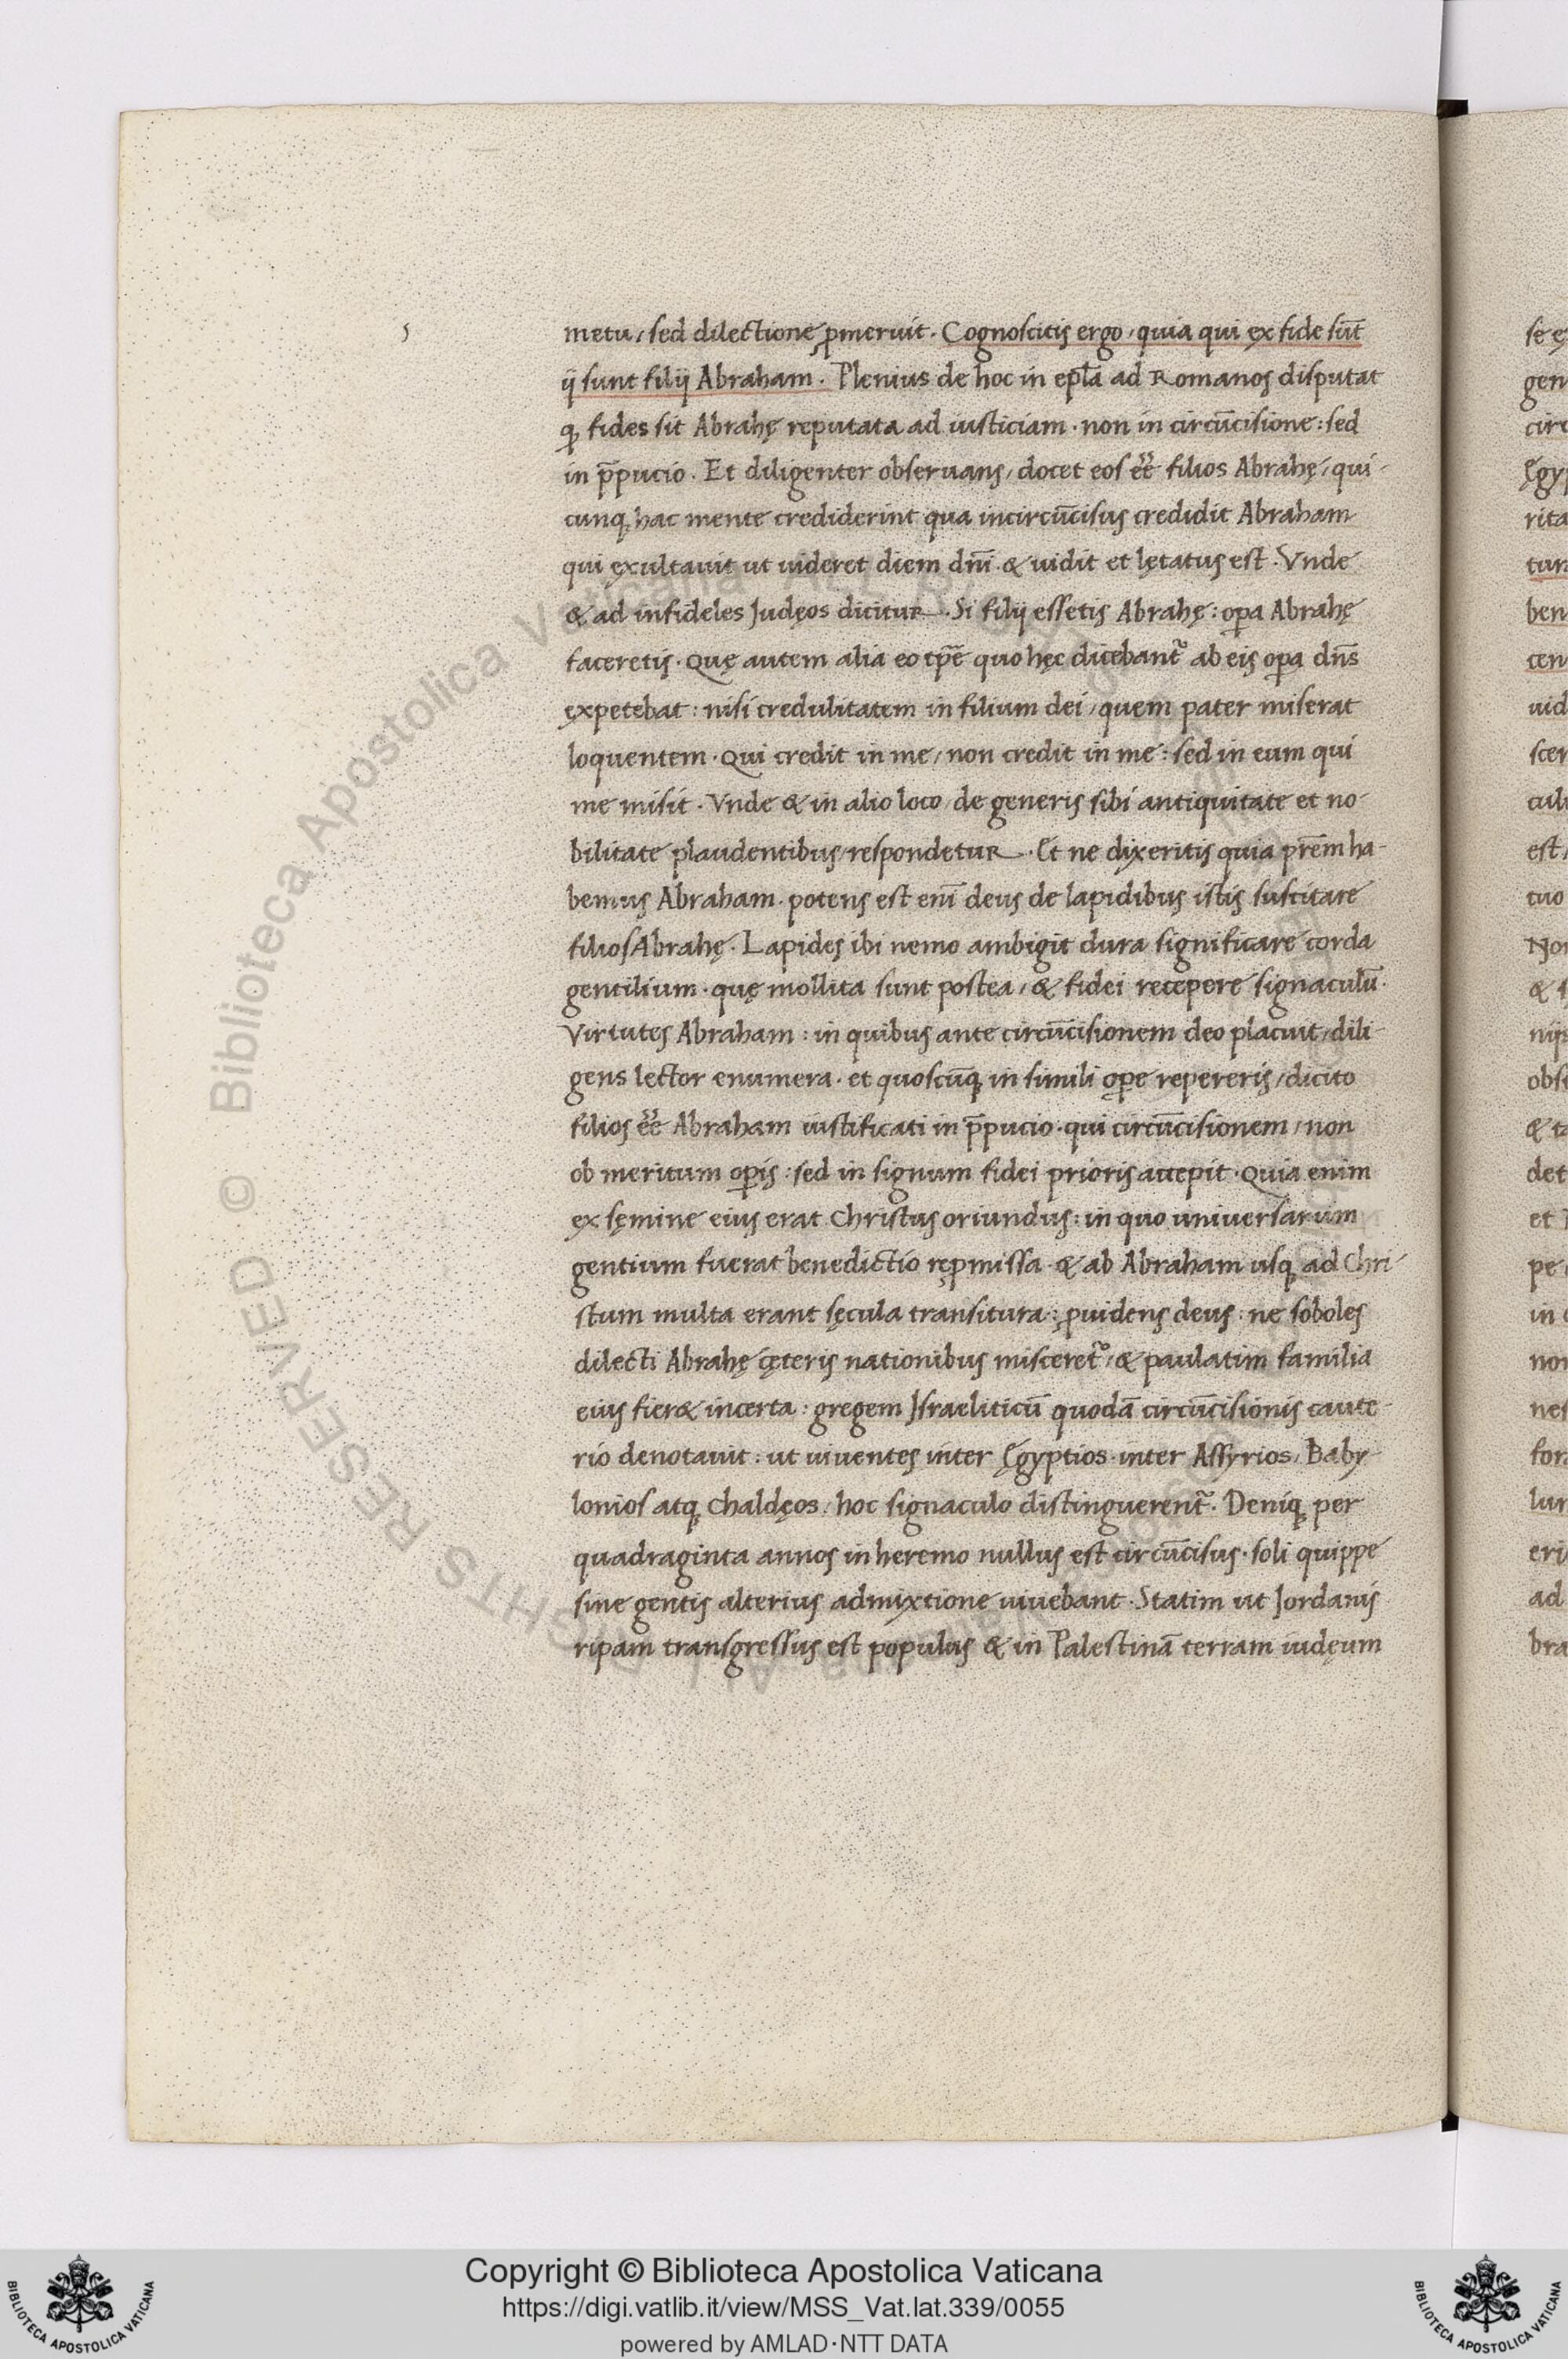 metu, sed dilectione ꝓmeruit. Cognoscitis ergo, quia qui ex fide sūt
ij sunt filij Abraham. Plenius de hoc in epl̄a ad Romanos disputat
ꝙ fides sit Abrahę reputata ad iusticiam. non in circūcisione: sed
in p̄pucio. Et diligenter obseruans, docet eos eē̄ filios Abrahę, qui-
cunq; hac mente crediderint qua incircūcisus credidit Abraham
qui exultauit ut uideret diem dn̄i. & uidit et lętatus est. Vnde
& ad infideles Judęos dicitur. Si filij essetis Abrahę: oꝑa Abrahę
faceretis. Quę autem alia eo tp̄e quo hęc dicebant᷑ ab eis oꝑa dn̄s
expetebat: nisi credulitatem in filium dei, quem pater miserat
loquentem. Qui credit in me, non credit in me: sed in eum qui
me misit. Vnde & in alio loco, de generis sibi antiquitate et no-
bilitate plaudentibus, respondetur. Et ne dixeritis quia pr̄em ha-
bemus Abraham. potens est enī deus de lapidibus istis suscitare
filios Abrahę. Lapides ibi nemo ambigit dura significare corda
gentilium. quę mollita sunt postea, & fidei recepere signaculū.
Virtutes Abraham: in quibus ante circūcisionem deo placuit, dili-
gens lector enumera. et quoscūq; in simili oꝑe repereris, dicito
filios eē̄ Abraham iustificati in p̄pucio. qui circūcisionem, non
ob meritum oꝑis: sed in signum fidei prioris accepit. Quia enim
ex sęmine eius erat Christus oriundus: in quo uniuersarum
gentium fuerat benedictio reꝓmissa. & ab Abraham usq; ad Chri-
stum multa erant sęcula transitura: ꝓuidens deus. ne soboles
dilecti Abrahę cęteris nationibus misceret᷑, & paulatim familia
eius fier& incerta: gregem Jsraeliticū quodā circūcisionis caute-
rio denotauit: ut uiuentes inter Ęgyptios. inter Assyrios, Baby-
lonios atq; Chaldęos, hoc signaculo distinguerent᷑. Deniq; per
quadraginta annos in heremo nullus est circūcisus. soli quippe
sine gentis alterius admixtione uiuebant. Statim ut Jordanis
ripam transgressus est populus & in Palestinā terram iudęum
Biblioteca Apostolica Vaticana
Copyright © Biblioteca Apostolica Vaticana
https://digi.vatlib.it/view/MSS_Vat.lat.339/0055
powered by AMLAD·NTT DATA